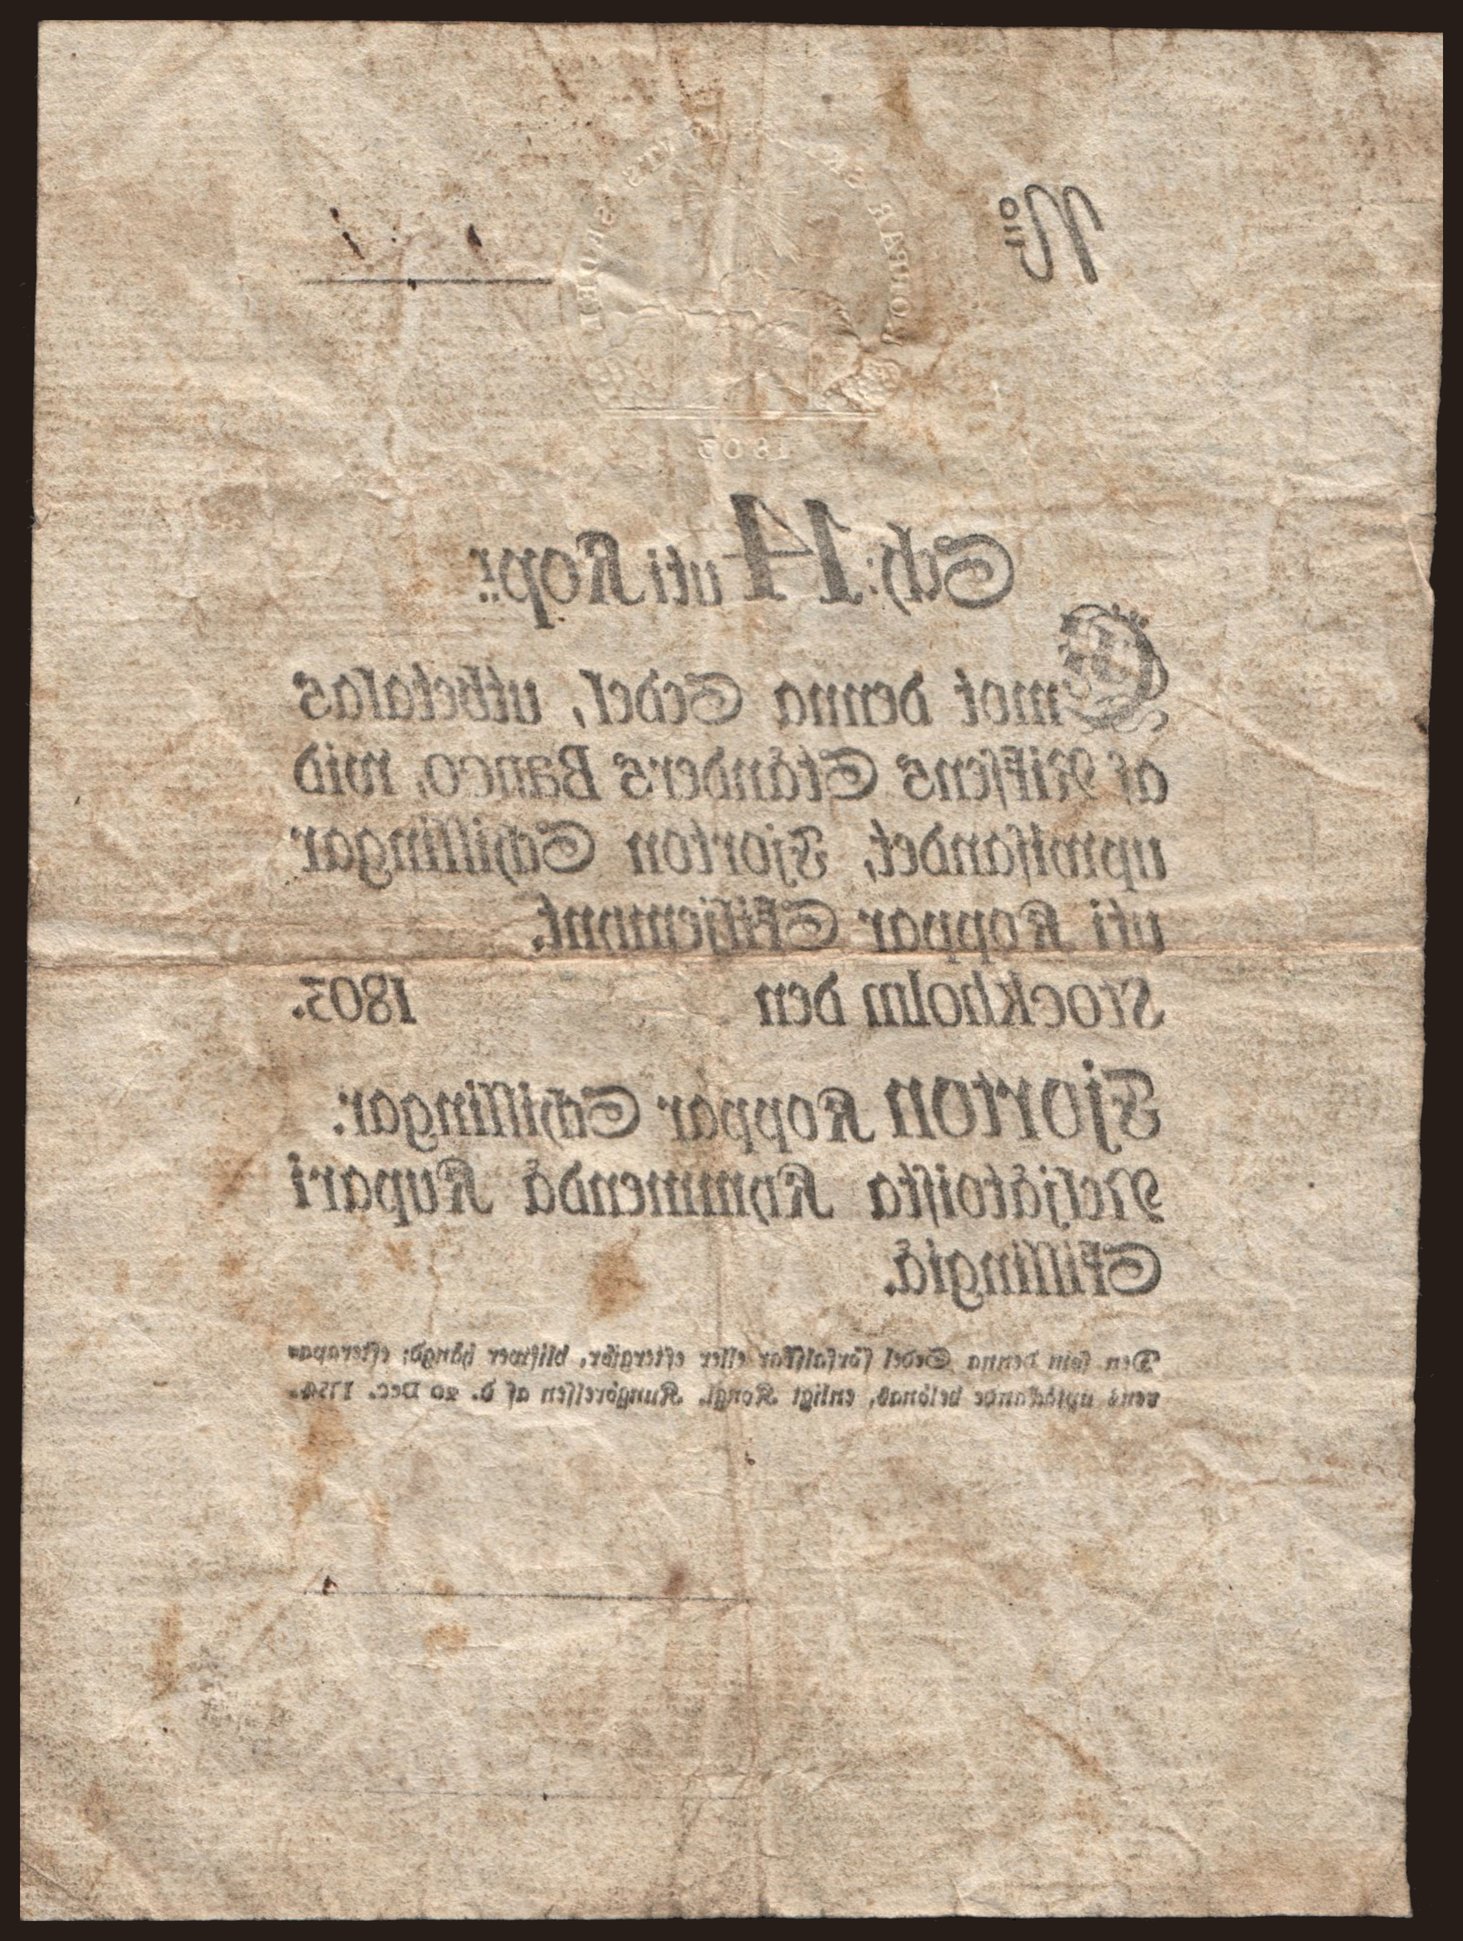 No
1803
Sch: 14 uti Kop:r
Emot denna Sedel, utbetalas
af Riksens Ständers Banco, wid
upwisandet, Fjorton Schillingar
uti Koppar Skiljemynt.
Stockholm den 1803.
Fjorton Koppar Schillingar.
Neljätoista Kymmendä Kupari
Skillingiä.
Den som denna Sedel förfalskar eller eftergiör, blifwer hängd; efterapa-
rens uptäckande belönas, enligt Kongl. Kungörelsen af d. 20 Dec. 1754.